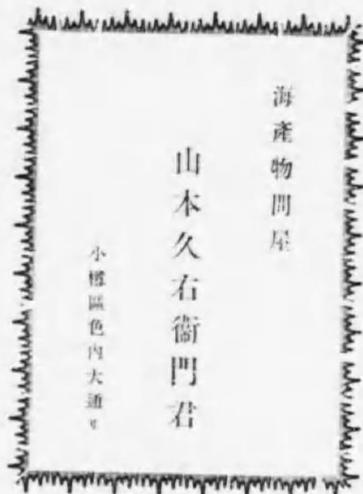 海產物問屋
山本久右衞門君
小樽區色內大通リ